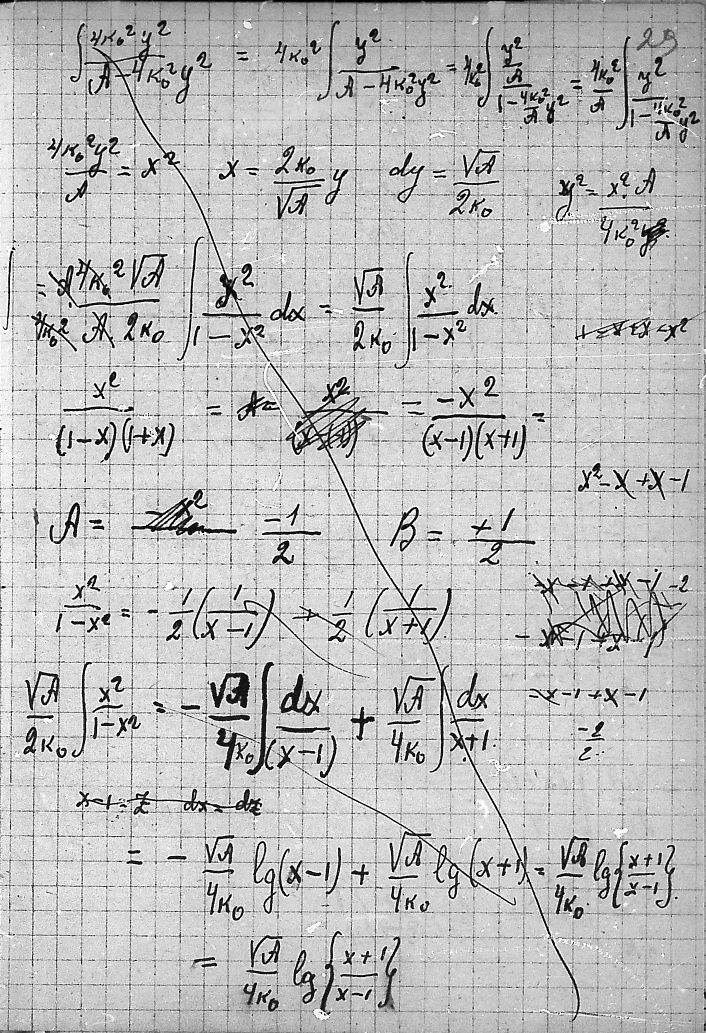 29
∫ 4κ₀²y² / (A − 4κ₀²y²) = 4κ₀² ∫ y² / (A − 4κ₀²y²) = 4κ₀² ∫ (y²/A) / (1 − (4κ₀²/A) y²) = (4κ₀²/A) ∫ y² / (1 − (4κ₀²/A) y²)
4κ₀²y² / A = x² x = (2κ₀/√A) y dy = √A / 2κ₀ y² = x² A / 4κ₀²
∫ = (4κ₀² √A) / (A 2κ₀) ∫ x² / (1 − x²) dx = (√A / 2κ₀) ∫ x² / (1 − x²) dx
x² / (1−x)(1+x) = = −x² / (x−1)(x+1) =
x² − x + x − 1
A = −1/2 B = +1/2
x² / (1−x²) = − 1/2 (1/(x−1)) + 1/2 (1/(x+1))
(√A / 2κ₀) ∫ x² / (1−x²) = − (√A / 4κ₀) ∫ dx / (x−1) + (√A / 4κ₀) ∫ dx / (x+1)
−x−1+x−1
−2/2
x−1 = z dx = dz
= − (√A / 4κ₀) lg(x−1) + (√A / 4κ₀) lg(x+1) = (√A / 4κ₀) lg{(x+1)/(x−1)}
= (√A / 4κ₀) lg{(x+1)/(x−1)}